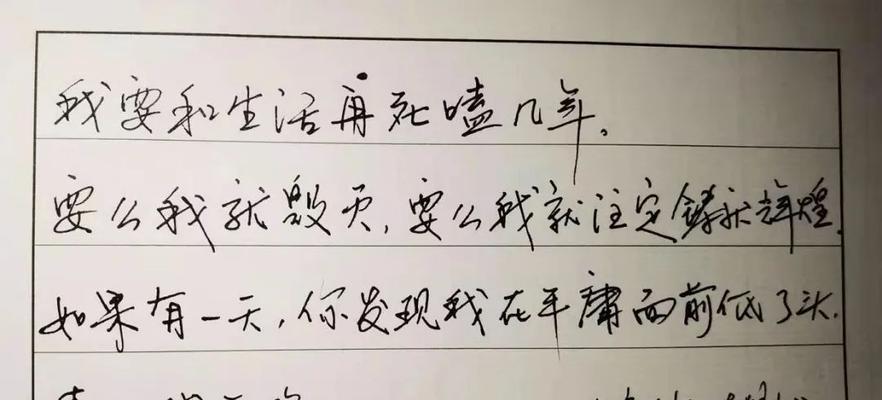 我要和生活再死嗑几年。
要么我就毁灭，要么我就注定铸就辉煌。
如果有一天，你发现我在平庸面前低了头，